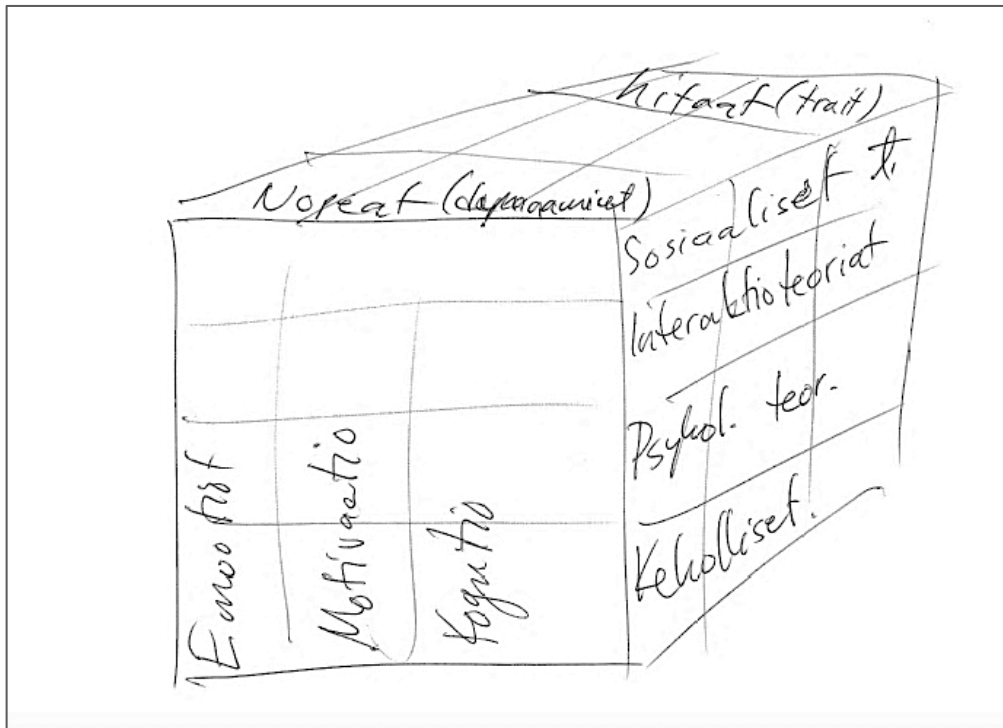 hitaat (trait)
Nopeat
Sosiaaliset t.
Interaktioteoriat
Psykol. teor.
Keholliset.
Emootiot
Motivaatio
Kognitio